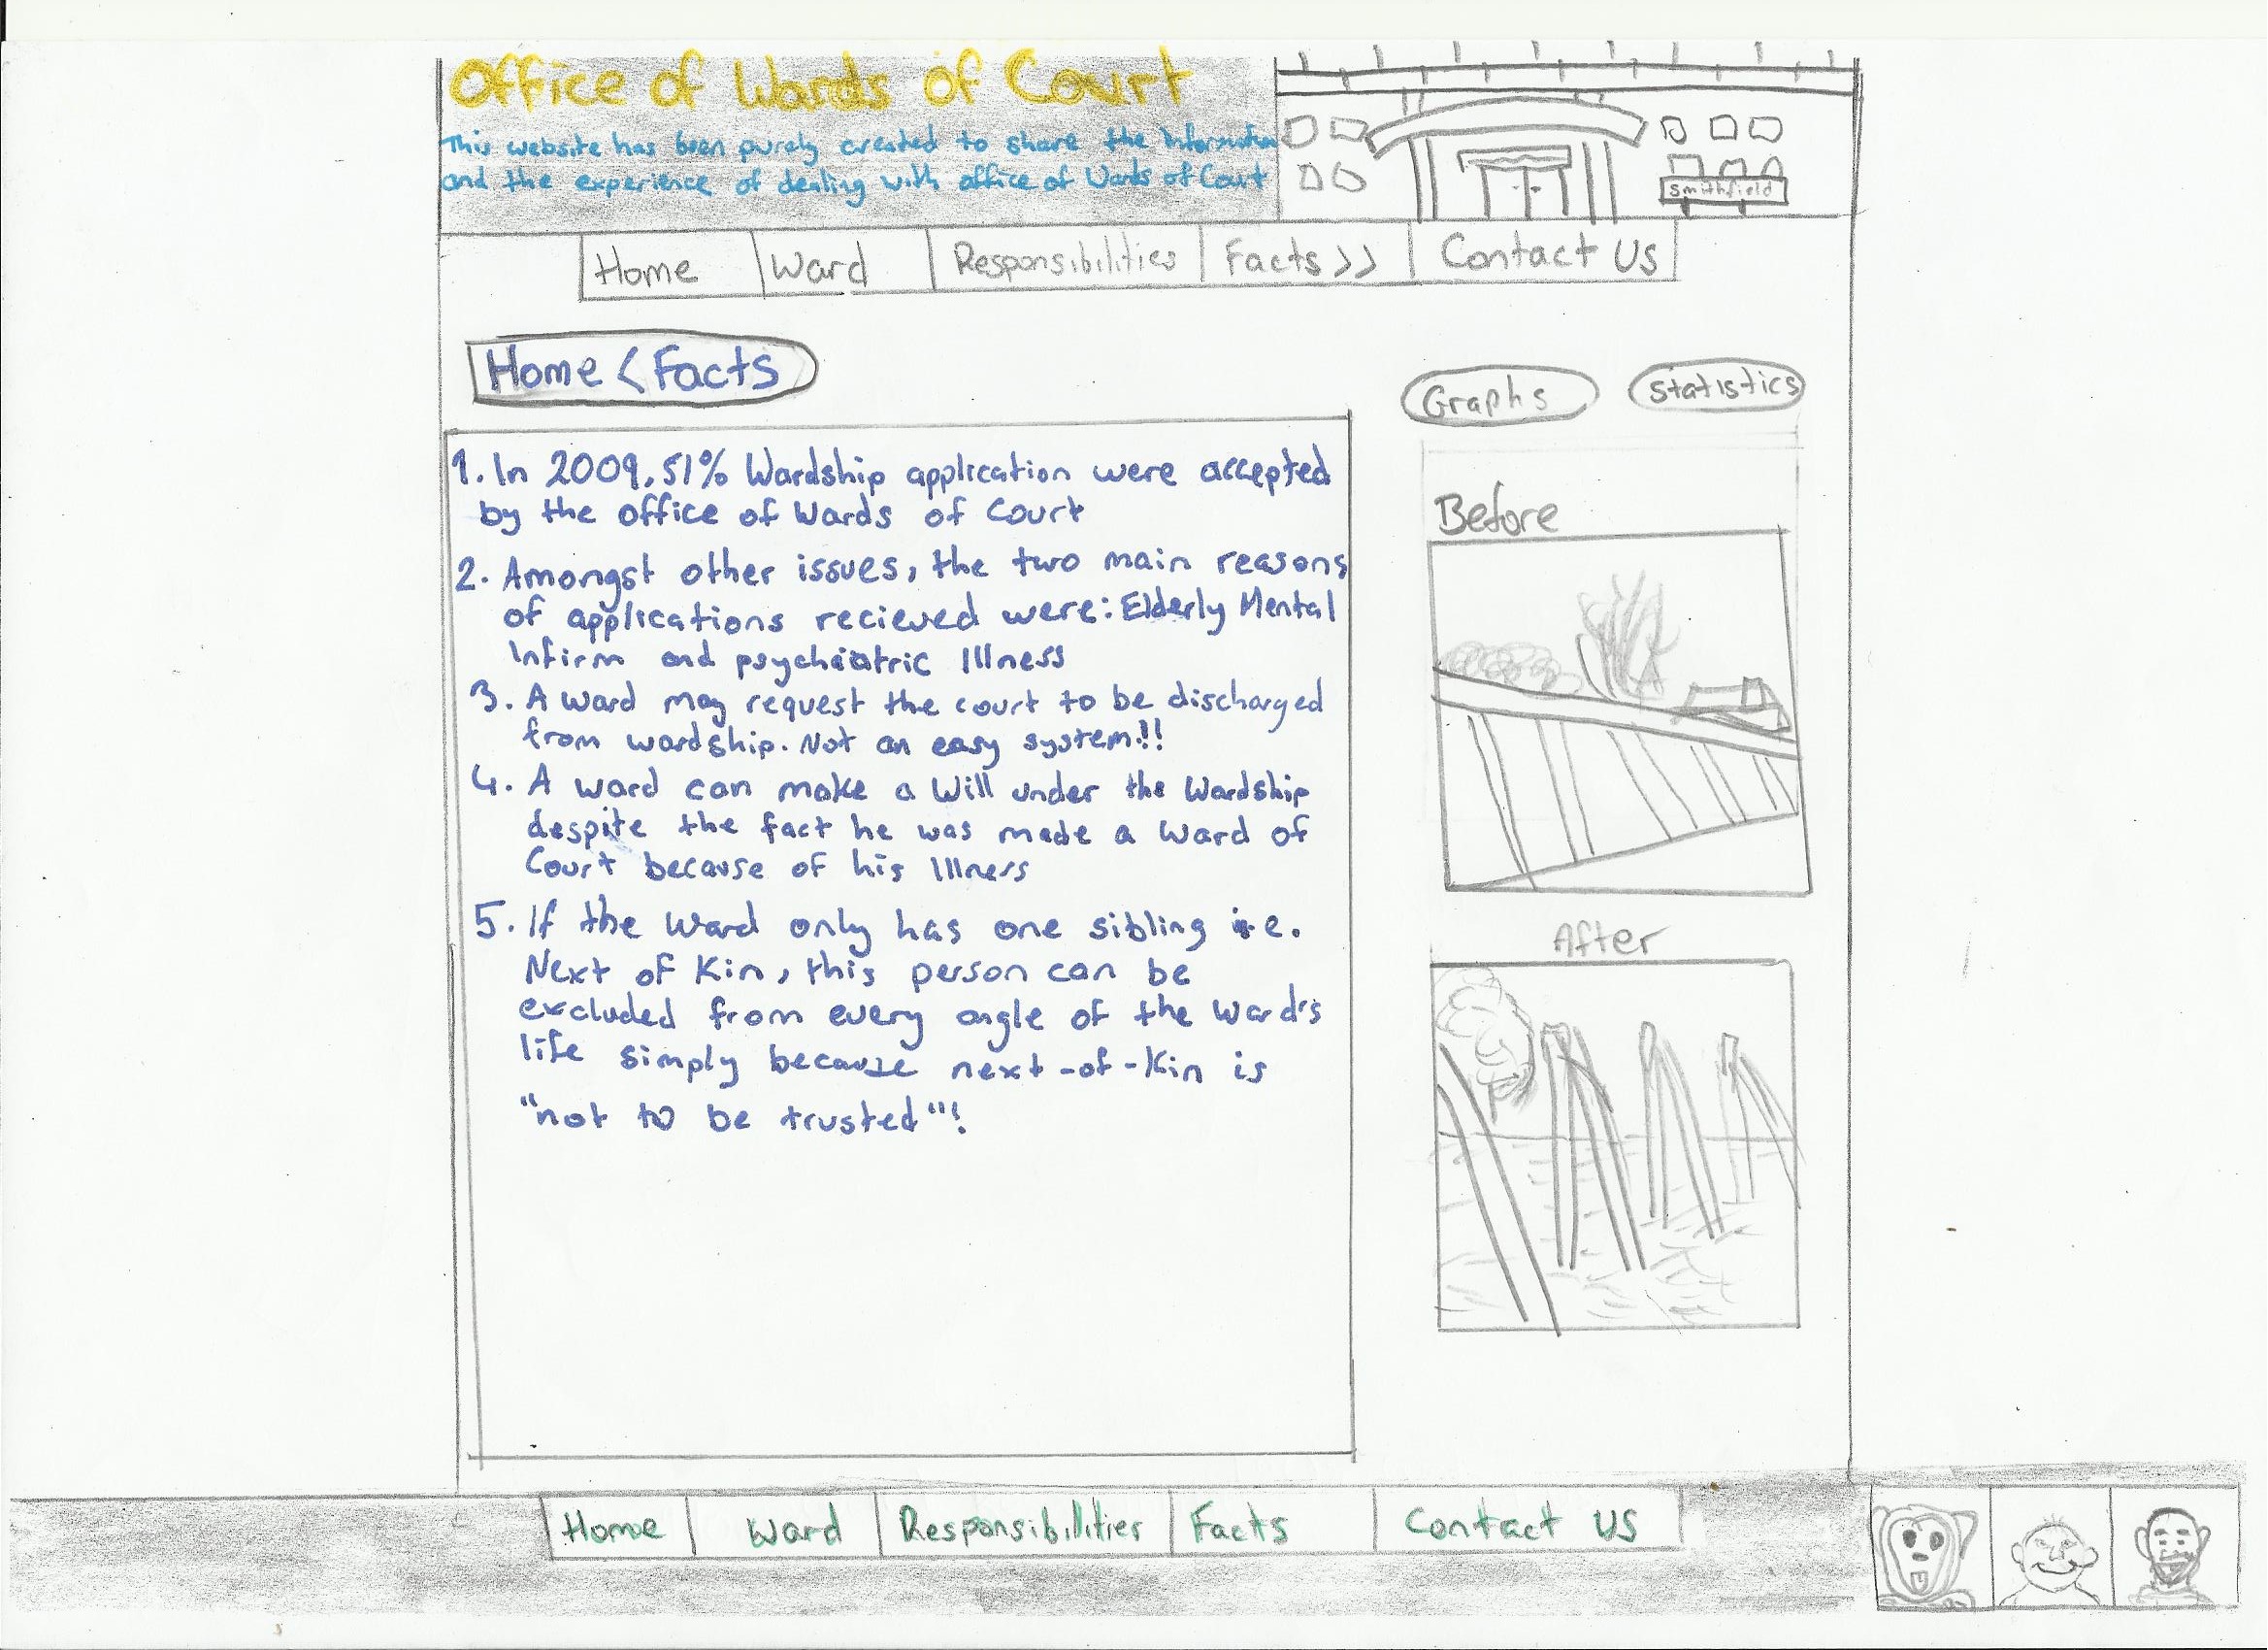 Office of Wards of Court
This website has been purely created to share the Information
and the experience of dealing with office of Wards of Court
Smithfield
Home Ward Responsibilities Facts >> Contact Us
Home < Facts
Graphs Statistics
1. In 2009, 51% Wardship application were accepted
by the office of Wards of Court
2. Amongst other issues, the two main reasons
of applications recieved were: Elderly Mental
Infirm and psychaiatric Illness
3. A ward may request the court to be discharged
from wardship. Not an easy system!!!
4. A ward can make a Will under the Wardship
despite the fact he was made a Ward of
Court because of his Illness
5. If the ward only has one sibling i.e.
Next of Kin, this person can be
excluded from every angle of the ward's
life simply because next-of-Kin is
"not to be trusted"!
Before
After
Home Ward Responsibilities Facts Contact US